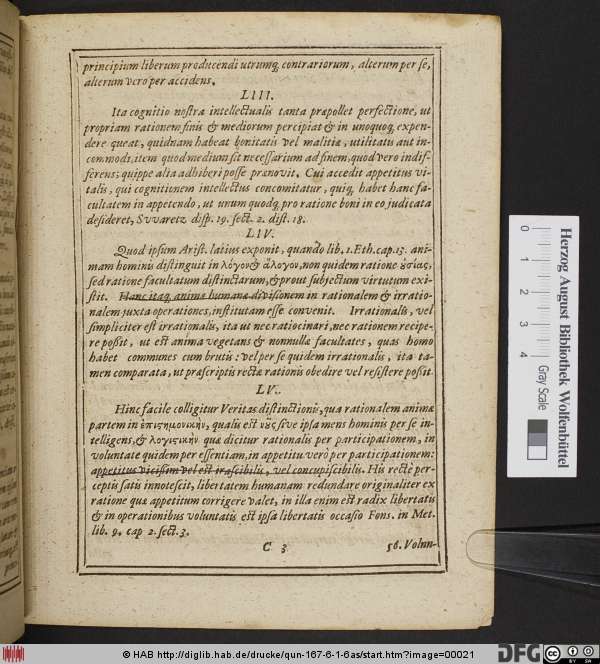 principium liberum producendi utrumq́; contrariorum, alterum per se,
alterum vero per accidens.
LIII.
Ita cognitio nostra intellectualis tanta præpollet perfectione, ut
propriam rationem finis & mediorum percipiat & in unoquoq́; expen-
dere queat, quidnam habeat bonitatis vel malitiæ, utilitatis aut in-
commodi, item quod medium sit necessarium ad finem, quod vero indif-
ferens; quippe alia adhiberi posse prænovit. Cui accedit appetitus vi-
talis, qui cognitionem intellectus concomitatur, quiq́; habet hanc fa-
cultatem in appetendo, ut unum quodq́; pro ratione boni in eo judicata
desideret, Svvaretz disp. 19. sect. 2. dist. 18.
LIV.
Quod ipsum Arist. latius exponit, quando lib. 1. Eth. cap. 13. ani-
mam hominis distinguit in λόγον & ἄλογον, non quidem ratione ȣ̓σίας,
sed ratione facultatum distinctarum, & prout subjectum virtutum exi-
stit. Hanc itaq́; animæ humanæ divisionem in rationalem & irratio-
nalem juxta operationes, institutam esse convenit. Irrationalis, vel
simpliciter est irrationalis, ita ut nec ratiocinari, nec rationem recipe-
re possit, ut est anima vegetans & nonnullæ facultates, quas homo
habet communes cum brutis: vel per se quidem irrationalis, ita ta-
men comparata, ut præscriptis rectæ rationis obedire vel resistere possit.
LV.
Hinc facile colligitur Veritas distinctionis, quæ rationalem animæ
partem in ἐπιστημονικὴν, qualis est νῦς sive ipsa mens hominis per se in-
telligens, & λογιστικὴν quæ dicitur rationalis per participationem, in
voluntate quidem per essentiam, in appetitu verò per participationem:
appetitus vicissim vel est irascibilis, vel concupiscibilis. His rectè per-
ceptis satis innotescit, libertatem humanam redundare originaliter ex
ratione quæ appetitum corrigere valet, in illa enim est radix libertatis
& in operationibus voluntatis est ipsa libertatis occasio Fons. in Met.
lib. 9. cap 2. sect. 3.
C 3
56. Volun-
0 1 2 3 4
Gray Scale
Herzog August Bibliothek Wolfenbüttel
© HAB http://diglib.hab.de/drucke/qun-167-6-1-6as/start.htm?image=00021
DFG
CC BY SA